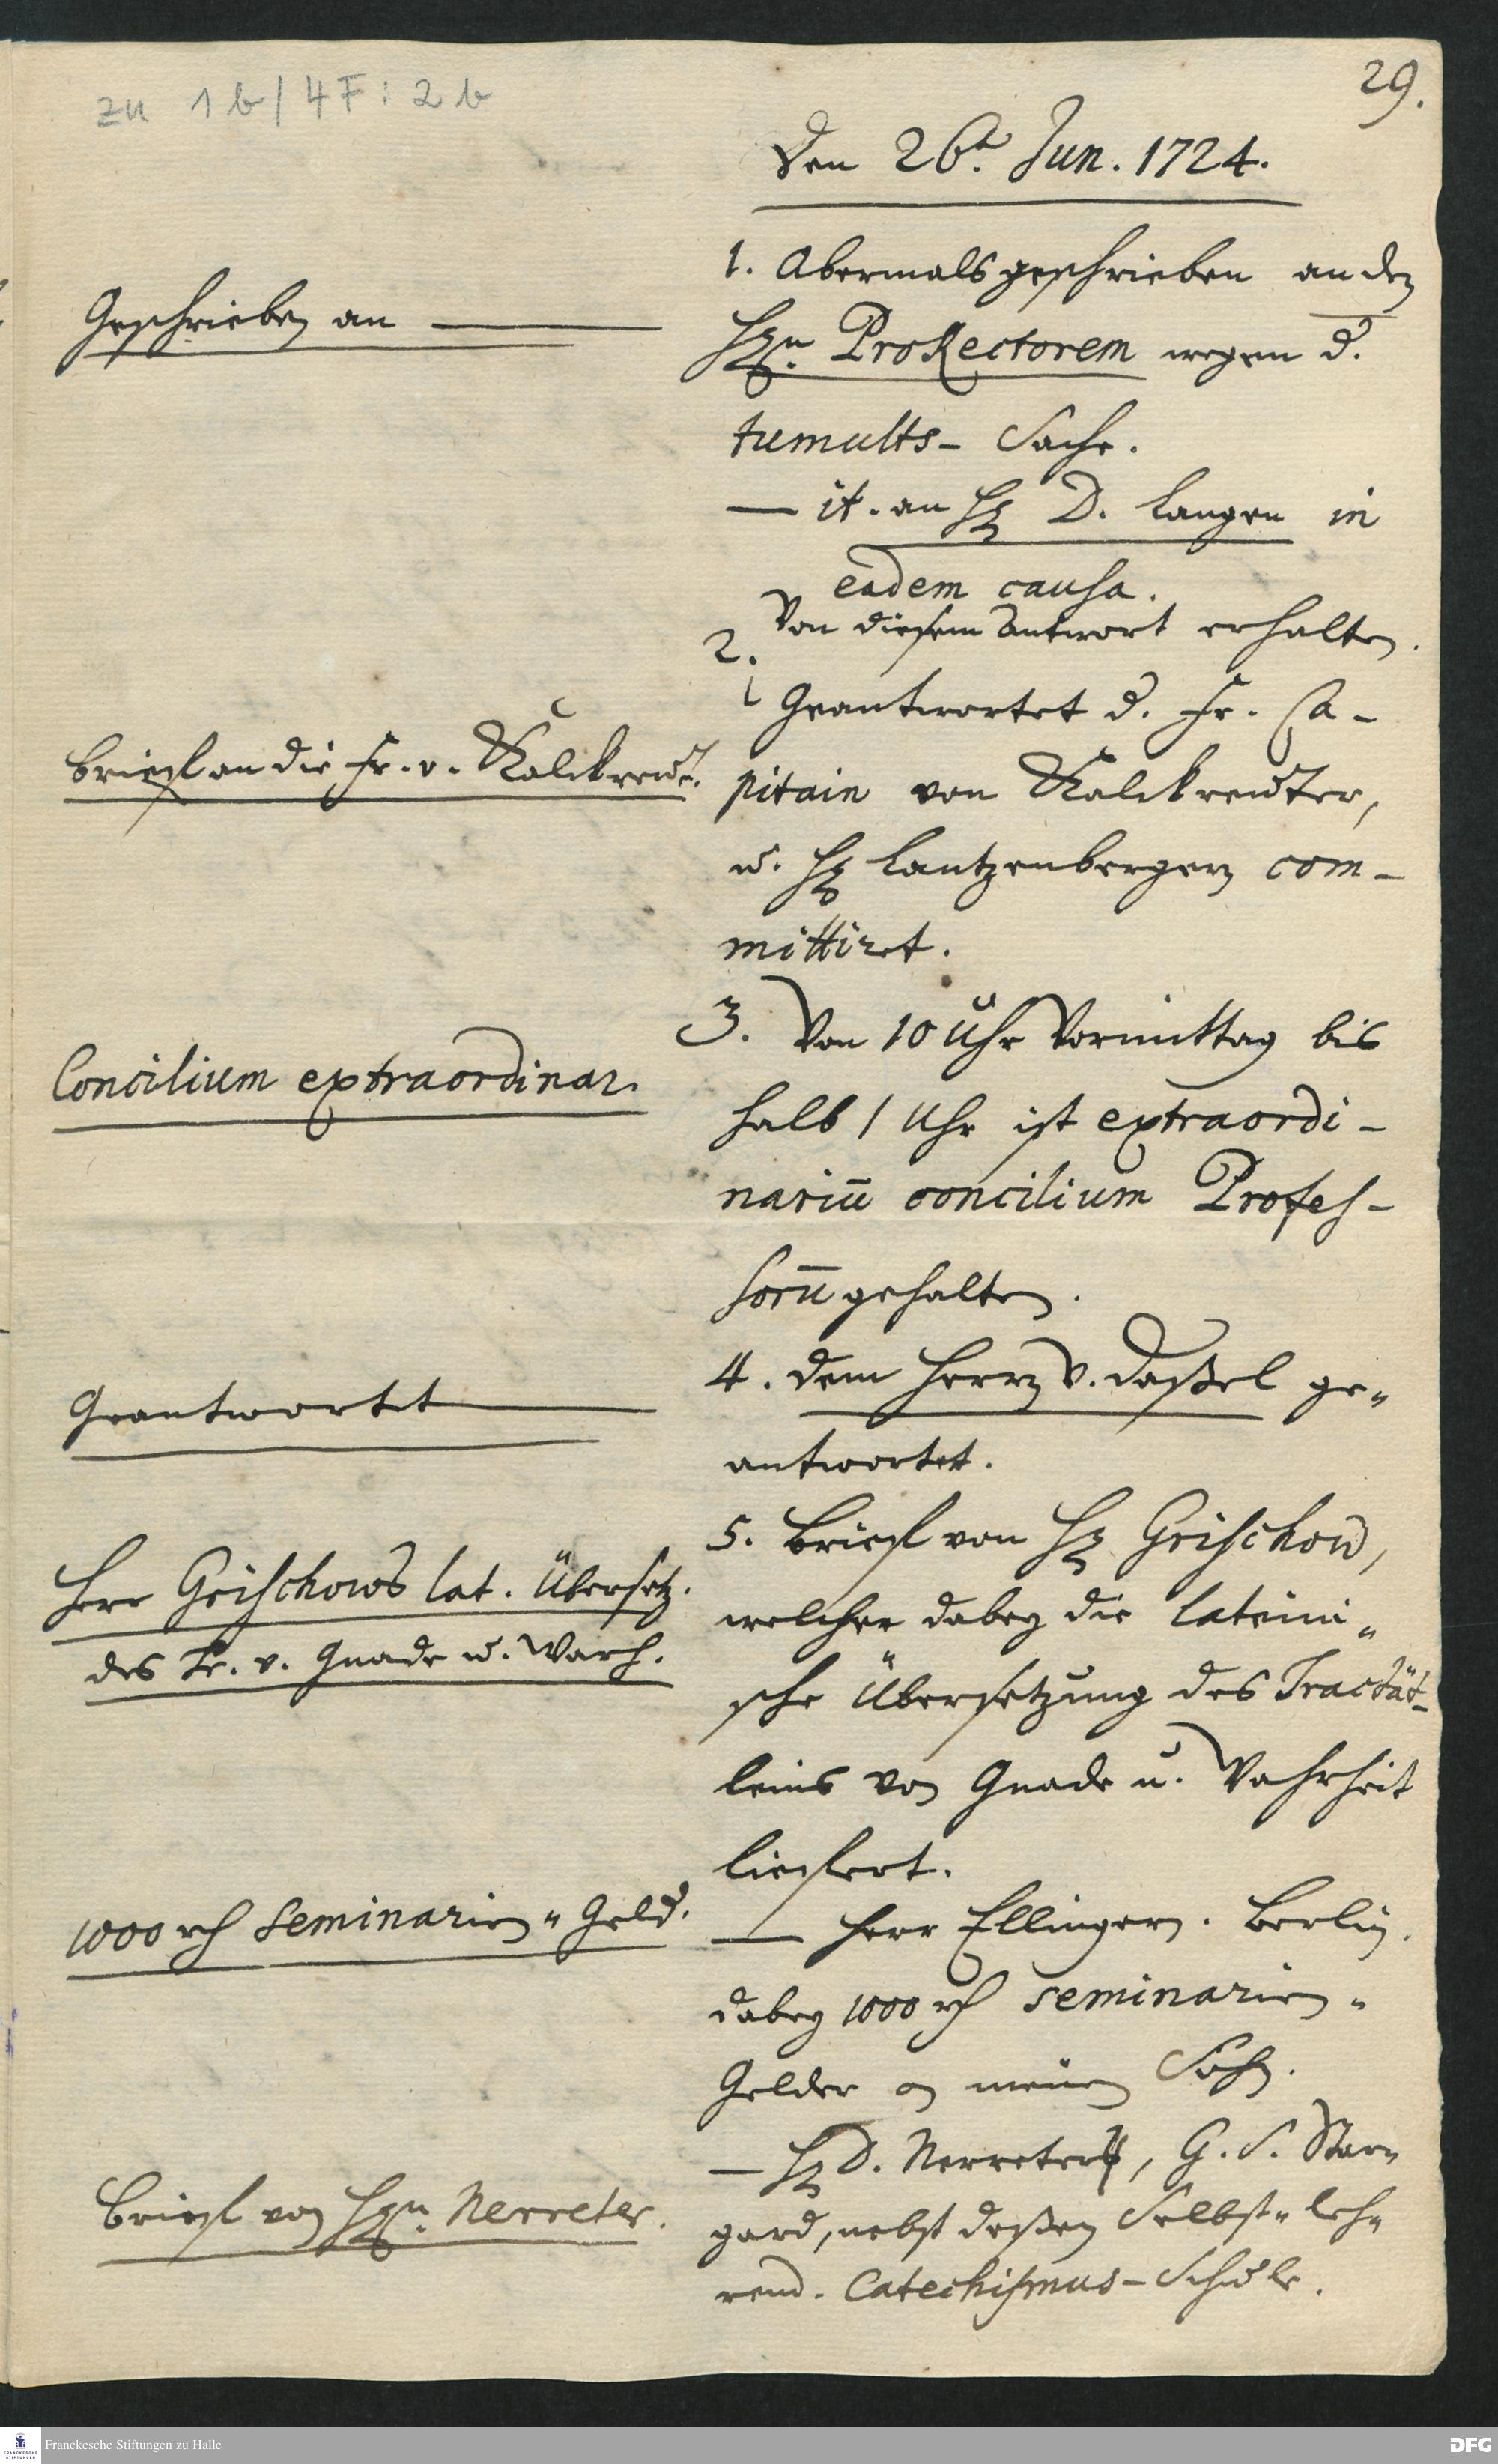 zu 1 b/4 F: 2 b
29.
Den 26t. Jun. 1724.
Geschrieben an
1. Abermals geschrieben an den
Hrn. ProRectorem wegen d.
tumults- Sache.
— it. an H. D. Langen in
eadem causa.
2. Von diesem antwort erhalten.
Briefl an die Fr. v. Kalckreut.
Geantwortet d. Fr. Ca-
pitain von Kalckreuter,
u. H. Lantzenbergern com-
mittiret.
Concilium extraordinar.
3. Von 10 Uhr Vormittag bis
halb 1 Uhr ist extraordi-
nariū concilium Profes-
sorū gehalten.
Geantwortet
4. dem Herrn v. Daßel ge-
antwortet.
Herr Grischows lat. Übersetz.
des Tr. v. Gnade u. Warh.
5. Briefl von H. Grischow,
welcher dabey die lateini-
sche Übersetzung des Tractät-
leins von Gnade u. Wahrheit
liefert.
1000 rth Seminarien-Geld.
— Herr Ellingern. Berlin.
dabey 1000 rth Seminarien-
Gelder an meinen Sohn.
Briefl von Hrn. Nerreter.
— H. D. Nerreters, G. S. Star-
gard, nebst deßen Selbst-leh-
rend. Catechismus-Schule.
Franckesche Stiftungen zu Halle
DFG